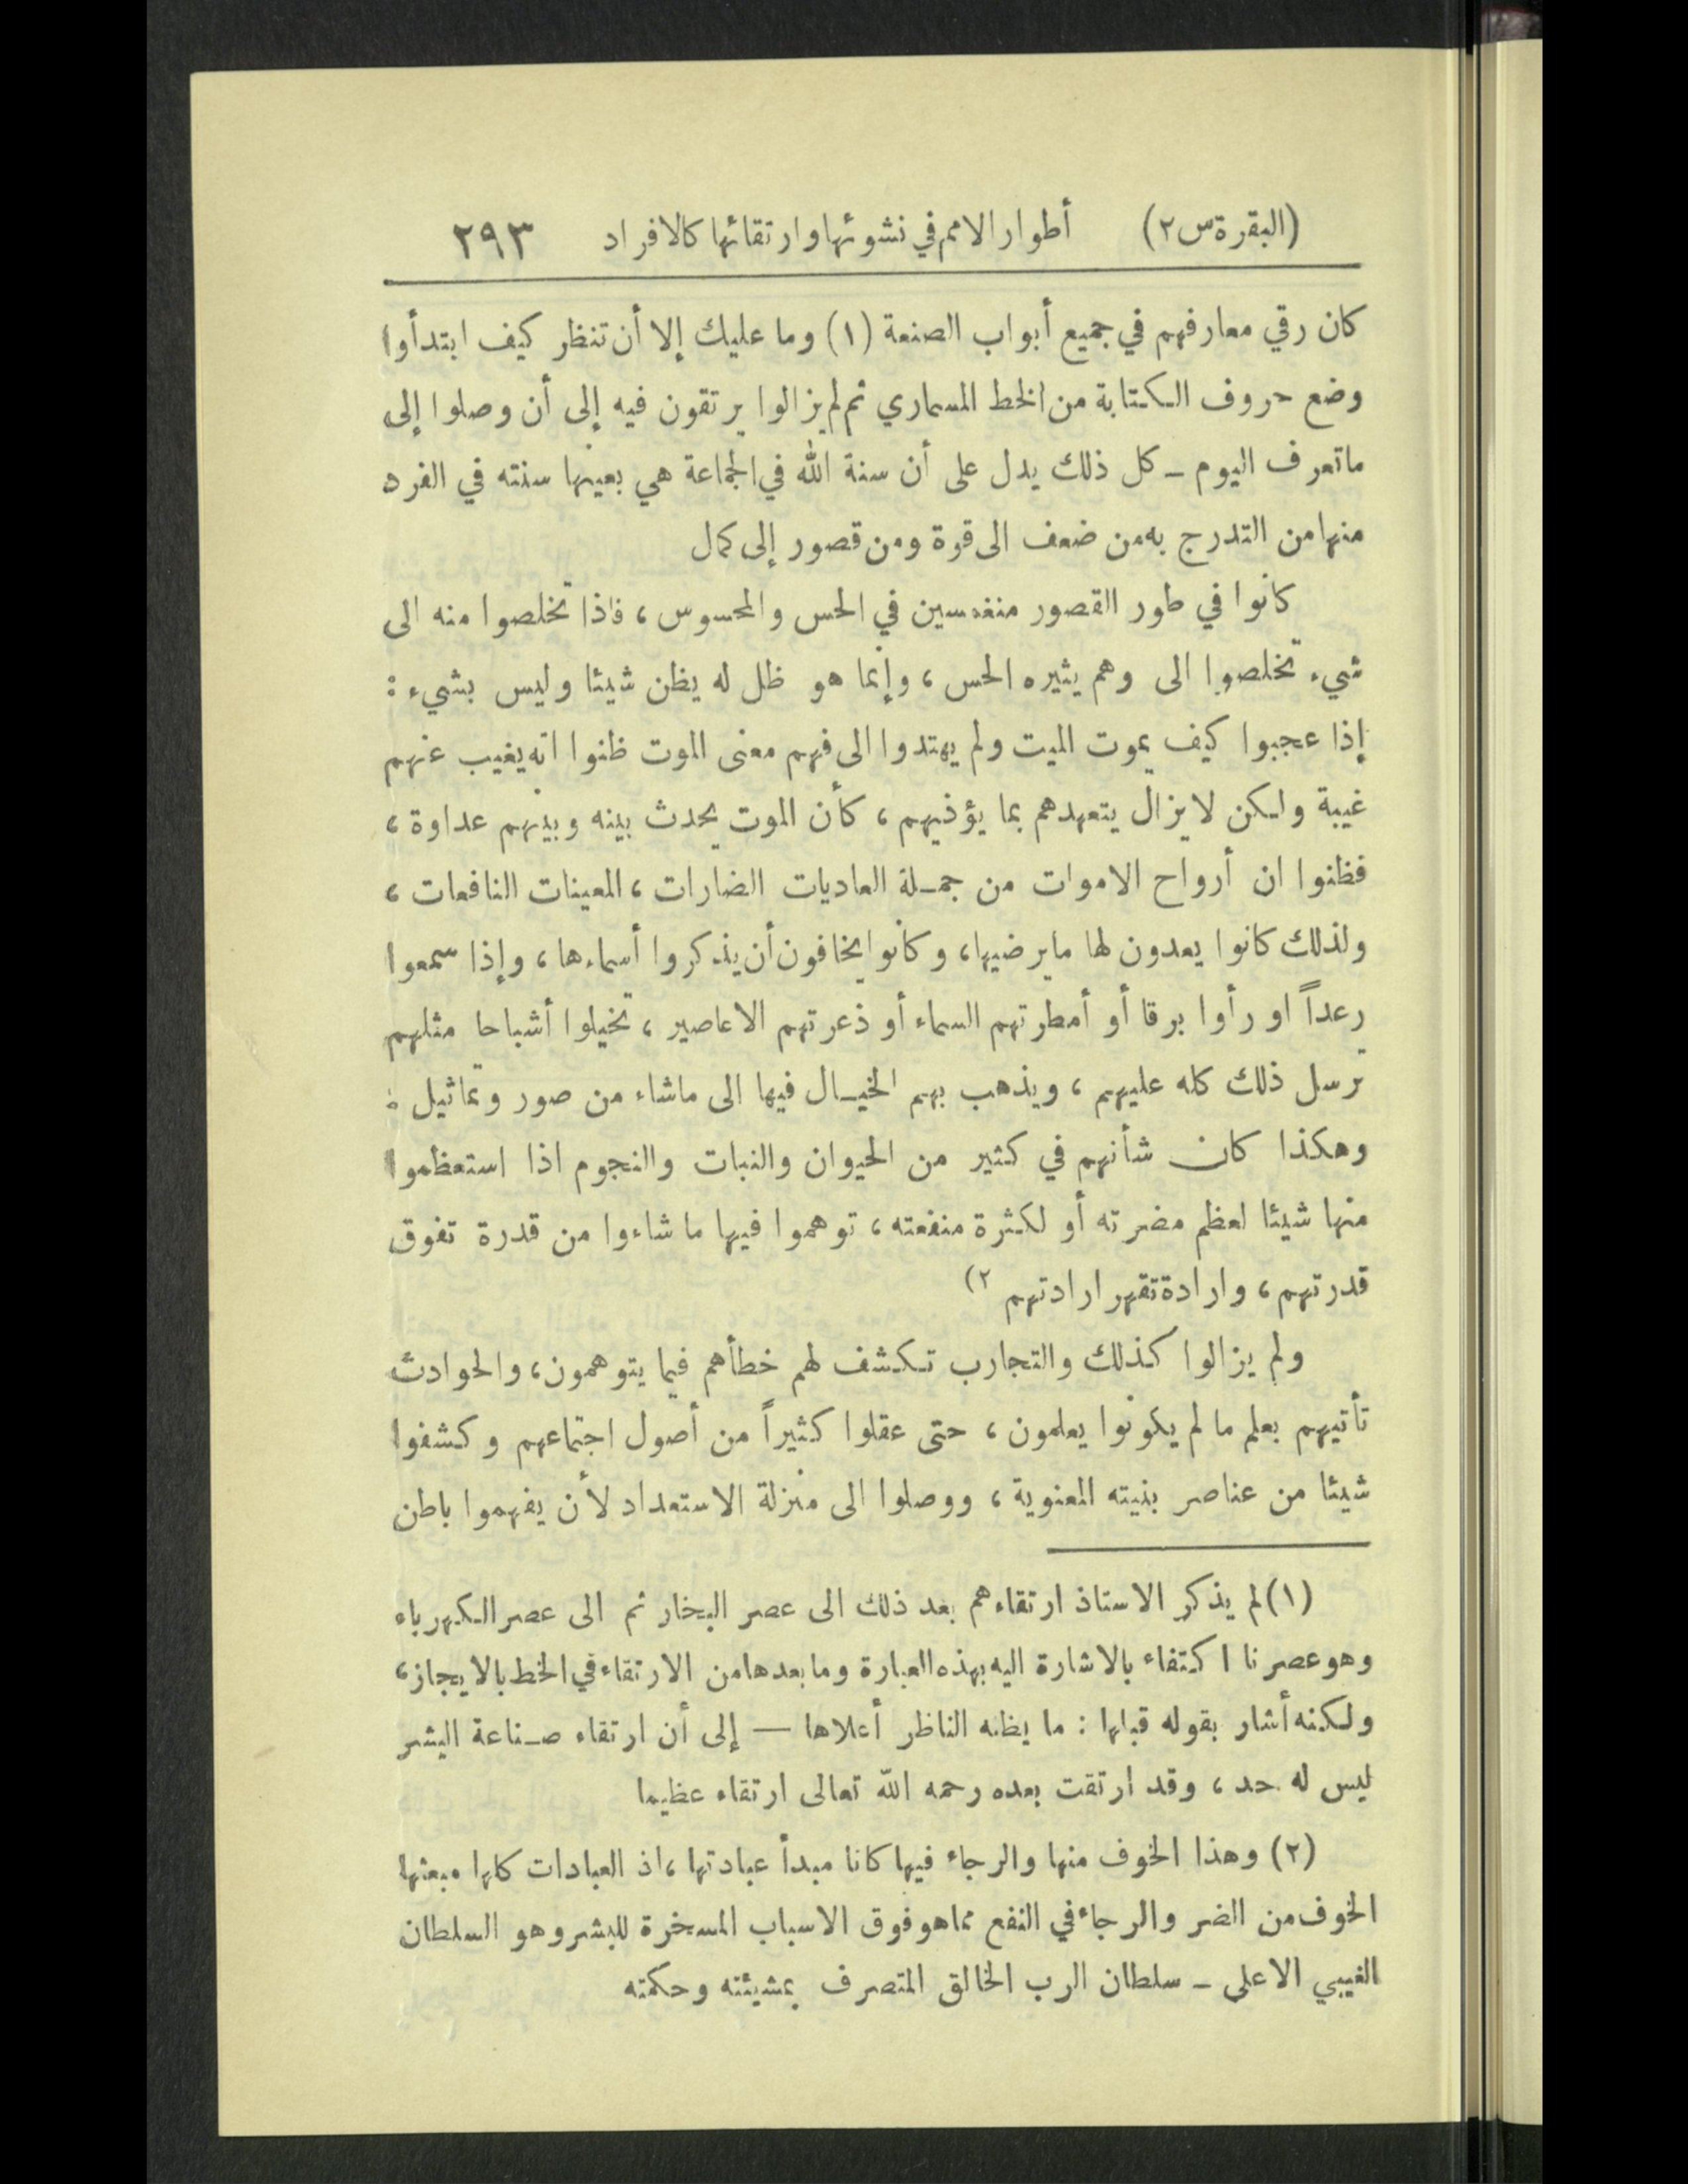 (البقرة س ٢) أطوار الامم في نشوئها وارتقائها كالافراد ٢٩٣
كان رقي معارفهم في جميع أبواب الصنعة (١) وما عليك إلا أن تنظر كيف ابتدأوا
وضع حروف الكتابة من الخط المسماري ثم لم يزالوا يرتقون فيه إلى أن وصلوا إلى
ما تعرف اليوم ـ كل ذلك يدل على أن سنة الله في الجماعة هي بعينها سنته في الفرد
منها من التدرج به من ضعف الى قوة ومن قصور إلى كمال
كانوا في طور القصور منغمسين في الحس والمحسوس، فاذا تخلصوا منه الى
شيء تخلصوا الى وهم يثيره الحس، وإنما هو ظل له يظن شيئا وليس بشيء:
إذا عجبوا كيف يموت الميت ولم يهتدوا الى فهم معنى الموت ظنوا انه يغيب عنهم
غيبة ولكن لا يزال يتعهدهم بما يؤذيهم، كأن الموت يحدث بينه وبينهم عداوة،
فظنوا ان أرواح الاموات من جملة العاديات الضارات، المعينات النافعات،
ولذلك كانوا يعدون لها ما يرضيها، وكانوا يخافون أن يذكروا أسماءها، وإذا سمعوا
رعداً او رأوا برقا أو أمطرتهم السماء أو ذعرتهم الاعاصير، تخيلوا أشباحا مثلهم
ترسل ذلك كله عليهم، ويذهب بهم الخيال فيها الى ماشاء من صور وتماثيل :
وهكذا كان شأنهم في كثير من الحيوان والنبات والنجوم اذا استعظموا
منها شيئا لعظم مضرته أو لكثرة منفعته، توهموا فيها ما شاءوا من قدرة تفوق
قدرتهم، وارادة تقهر ارادتهم ٢)
ولم يزالوا كذلك والتجارب تكشف لهم خطأهم فيما يتوهمون، والحوادث
تأتيهم بعلم ما لم يكونوا يعلمون، حتى عقلوا كثيراً من أصول اجتماعهم وكشفوا
شيئا من عناصر بنيته المعنوية، ووصلوا الى منزلة الاستعداد لأن يفهموا باطن
(١) لم يذكر الاستاذ ارتقاءهم بعد ذلك الى عصر البخار ثم الى عصر الكهرباء
وهو عصرنا اكتفاء بالاشارة اليه بهذه العبارة وما بعدها من الارتقاء في الخط بالايجاز،
ولكنه أشار بقوله قبلها : ما يظنه الناظر أعلاها — إلى أن ارتقاء صناعة البشر
ليس له حد، وقد ارتقت بعده رحمه الله تعالى ارتقاء عظيما
(٢) وهذا الخوف منها والرجاء فيها كانا مبدأ عبادتها، اذ العبادات كلها مبعثها
الخوف من الضر والرجاء في النفع مما هو فوق الاسباب المسخرة للبشر وهو السلطان
الغيبي الاعلى ـ سلطان الرب الخالق المتصرف بمشيئته وحكمته